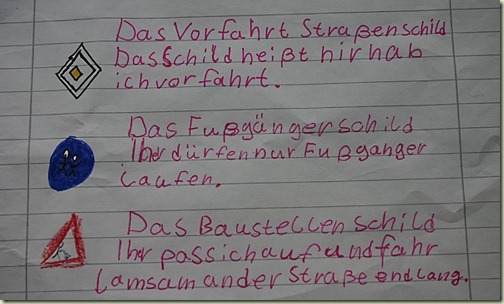 Das Vorfahrt Straßenschild
Das Schild heißt hir hab
ich vorfahrt.
Das Fußgänger schild
Ihr dürfen nur Fußganger
laufen.
Das Baustellen schild
Ihr pass ich auf und fahr
lamsam an der Straße endlang.